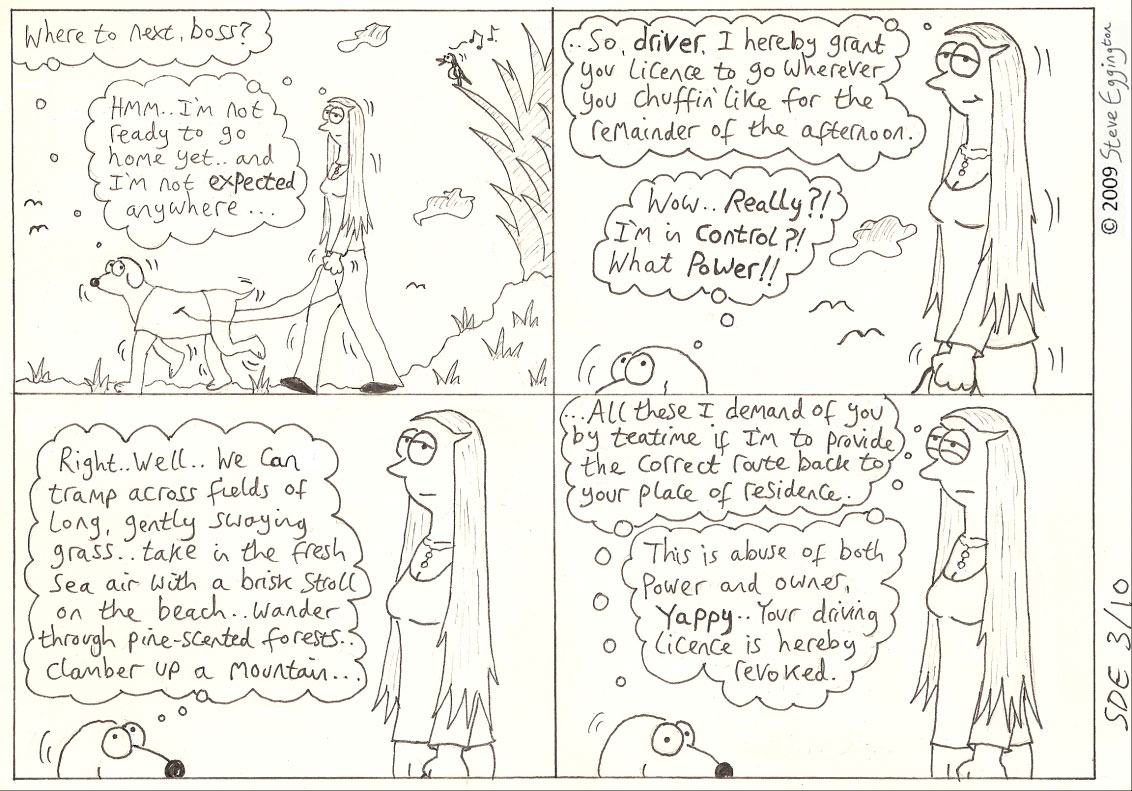 Where to next, boss?
HMM.. I'm not
ready to go
home yet.. and
I'm not expected
anywhere ...
..So, driver, I hereby grant
you licence to go wherever
you chuffin' like for the
remainder of the afternoon.
Wow.. Really?!
I'm in control?!
What Power!!
Right..Well.. We can
tramp across fields of
long, gently swaying
grass.. take in the fresh
sea air with a brisk stroll
on the beach.. wander
through pine-scented forests..
clamber up a mountain...
...All these I demand of you
by teatime if I'm to provide
the correct route back to
your place of residence.
This is abuse of both
power and owner,
Yappy.. Your driving
licence is hereby
revoked.
© 2009 Steve Eggington
SDE 3/10